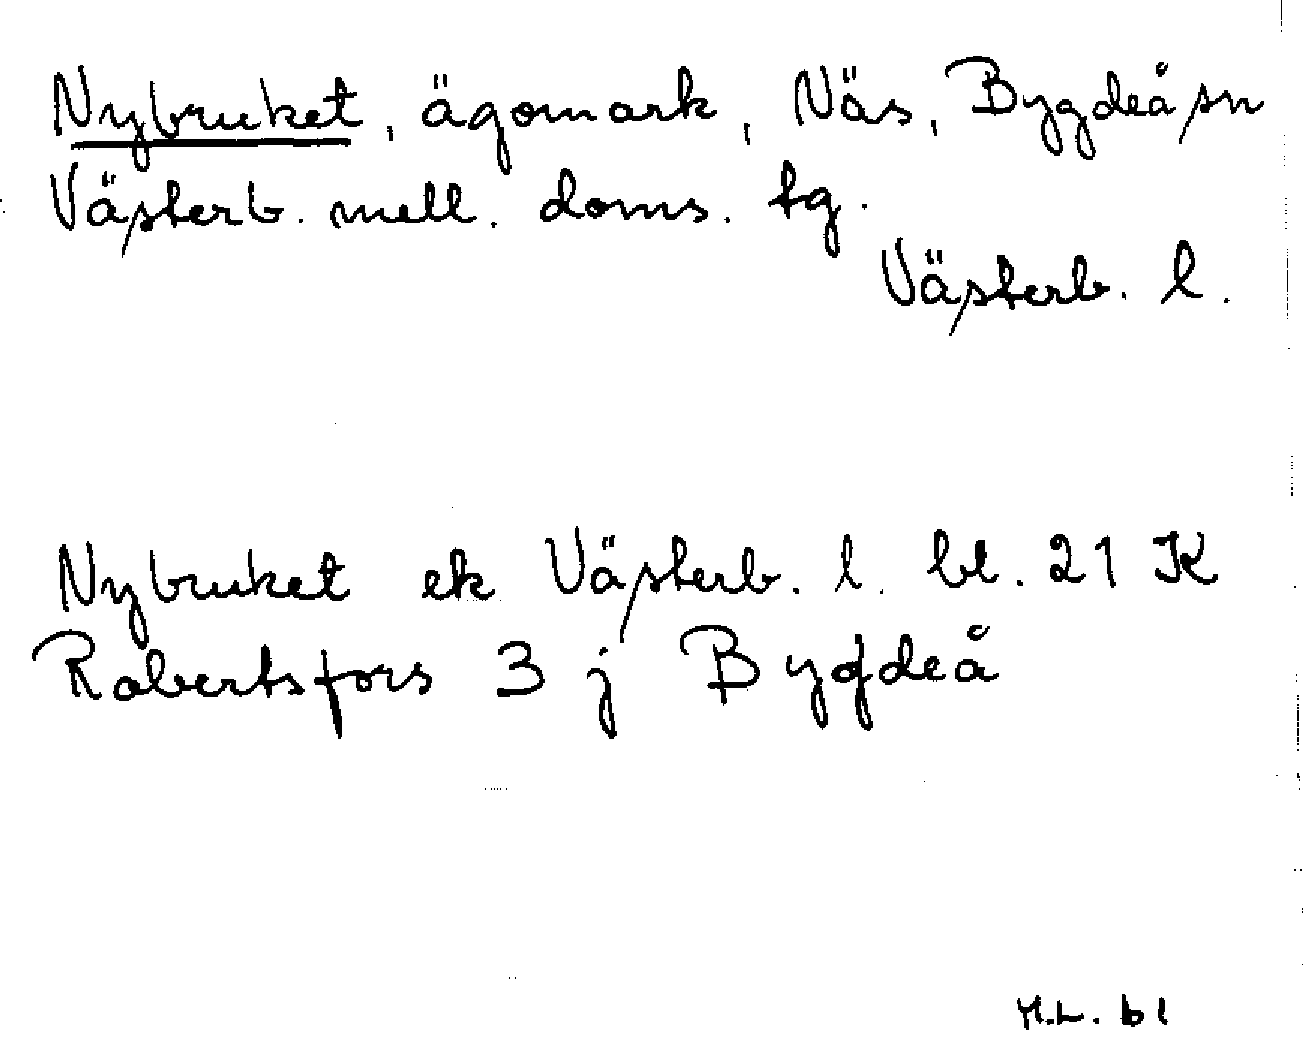 Nybruket, ägomark, Näs, Bygdeå sn
Västerb. mell. doms. tg.
Västerb. l.
Nybruket ek Västerb. l. bl. 21 K
Robertsfors 3 j Bygdeå
M.L. 61